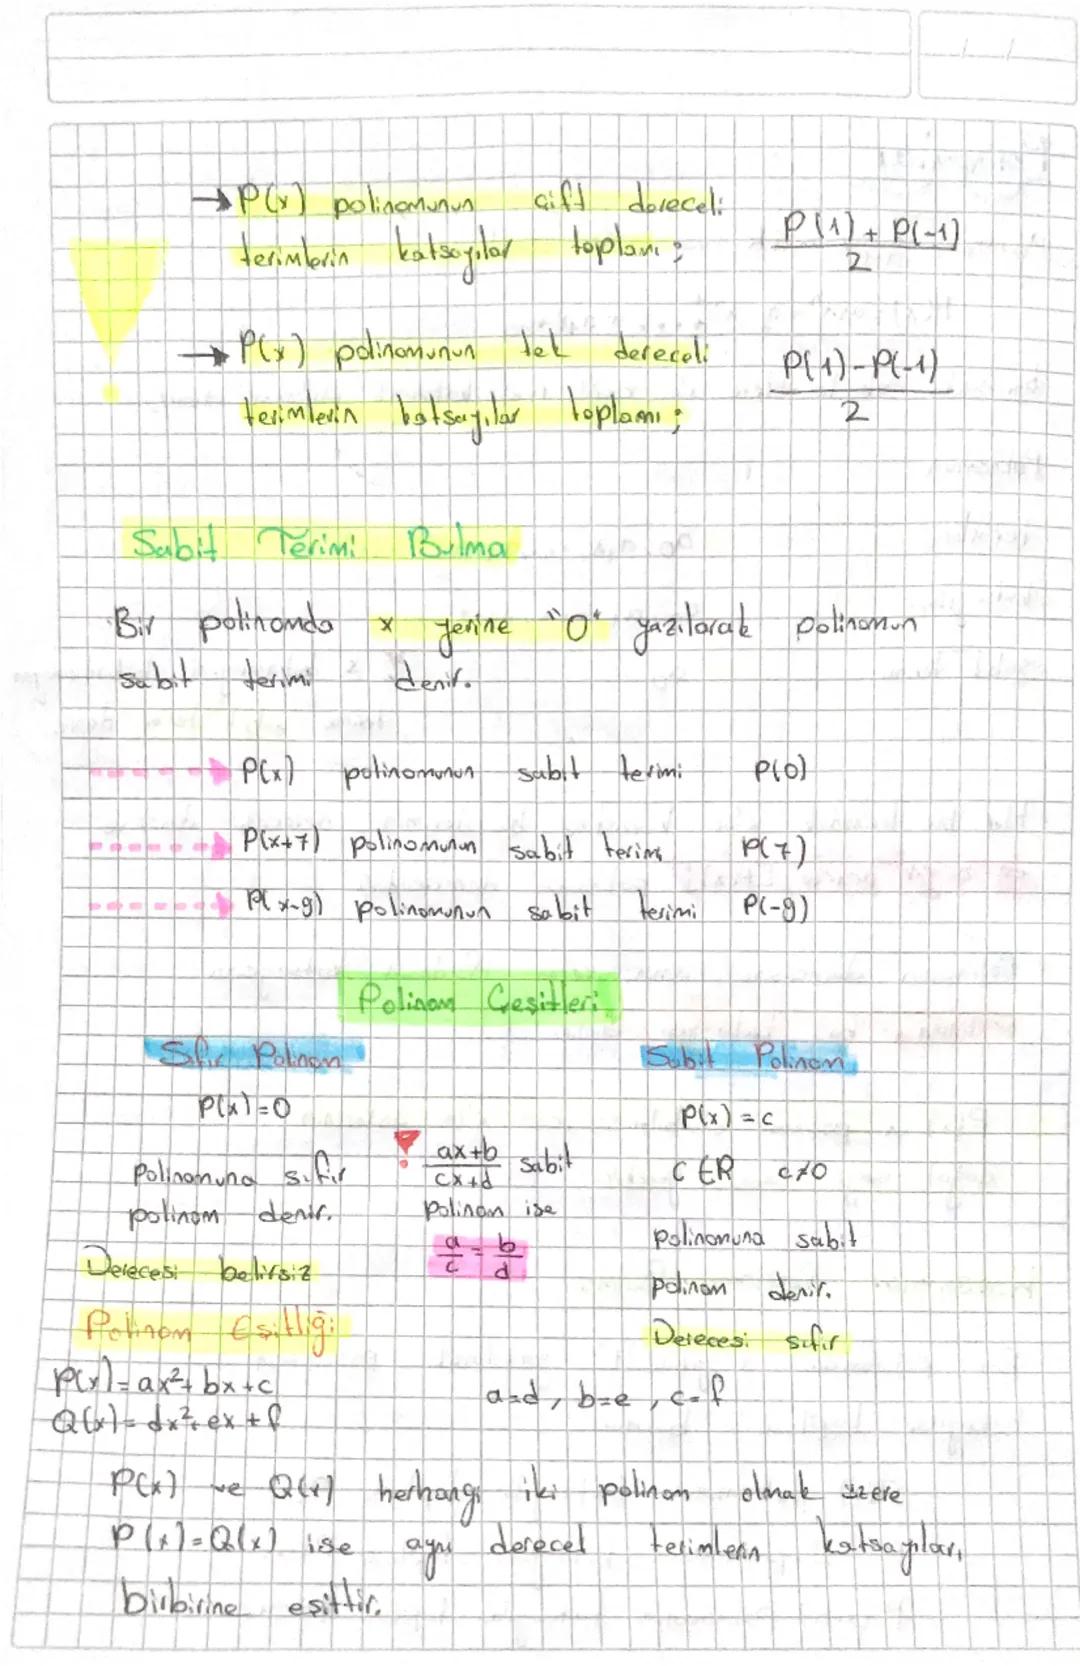 → P(x) polinomunun çift dereceli
terimlerin katsayılar toplamı ; P(1) + P(-1) / 2
→ P(x) polinomunun tek dereceli
terimlerin katsayılar toplamı ; P(1) - P(-1) / 2
Sabit Terimi Bulma
Bir polinomda x yerine "0" yazılarak polinomun
sabit terimi denir.
P(x) polinomunun sabit terimi P(0)
P(x+7) polinomunun sabit terimi P(7)
P(x-9) polinomunun sabit terimi P(-9)
Polinom Çeşitleri
Sıfır Polinom
P(x)=0
polinomuna sıfır
polinom denir.
Derecesi belirsiz
! ax+b / cx+d sabit
polinom ise
a/c = b/d
Sabit Polinom
P(x) = c
c ∈ R c≠0
polinomuna sabit
polinom denir.
Derecesi sıfır
Polinom Eşitliği
P(x)= ax²+ bx +c
Q(x)= dx²+ ex + f
a=d, b=e, c=f
P(x) ve Q(x) herhangi iki polinom olmak üzere
P(x)=Q(x) ise aynı derecel terimlerin katsayıları,
birbirine eşittir.